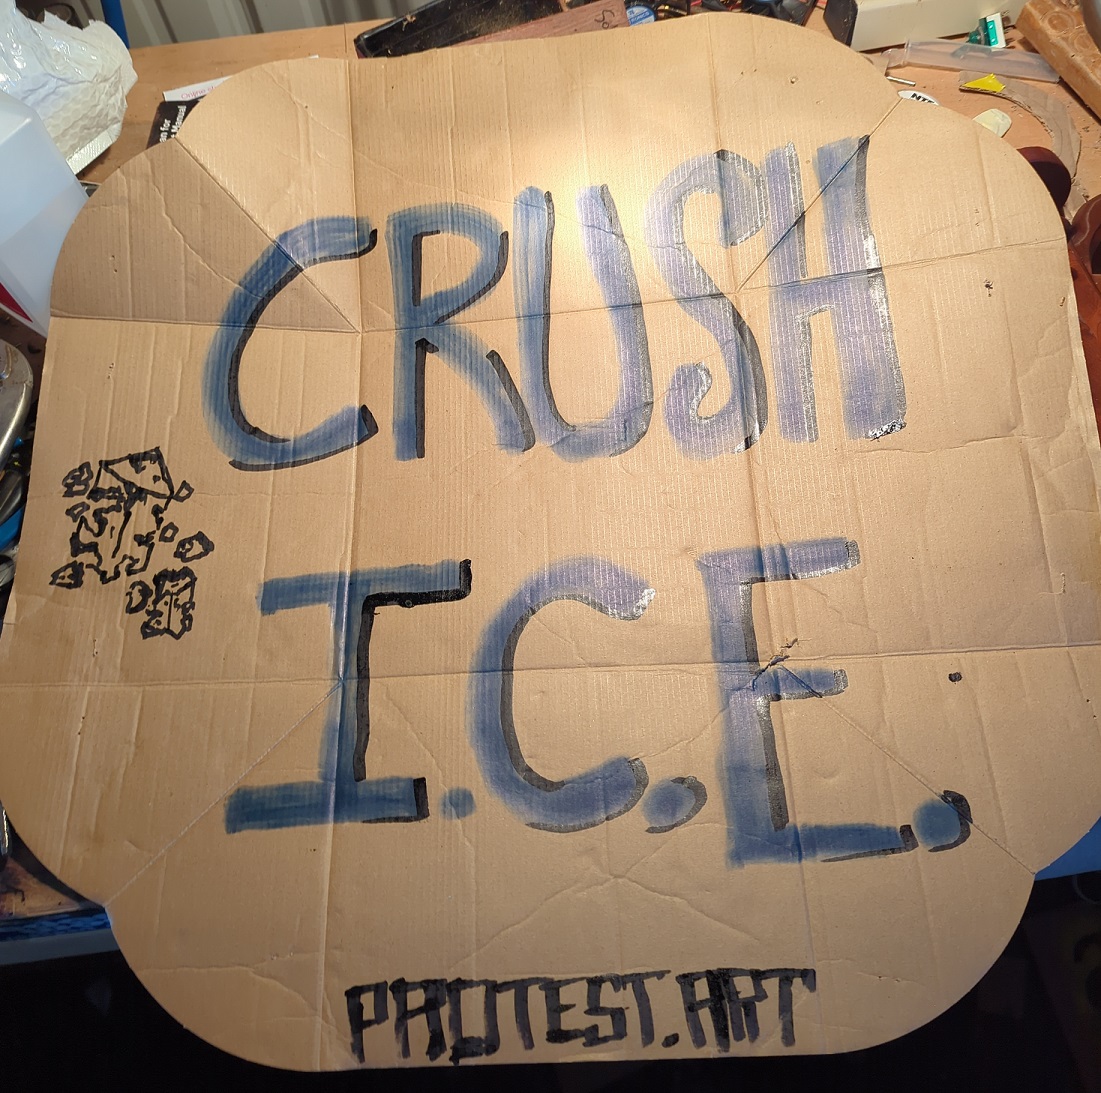 CRUSH
I.C.E.
PROTEST.ART